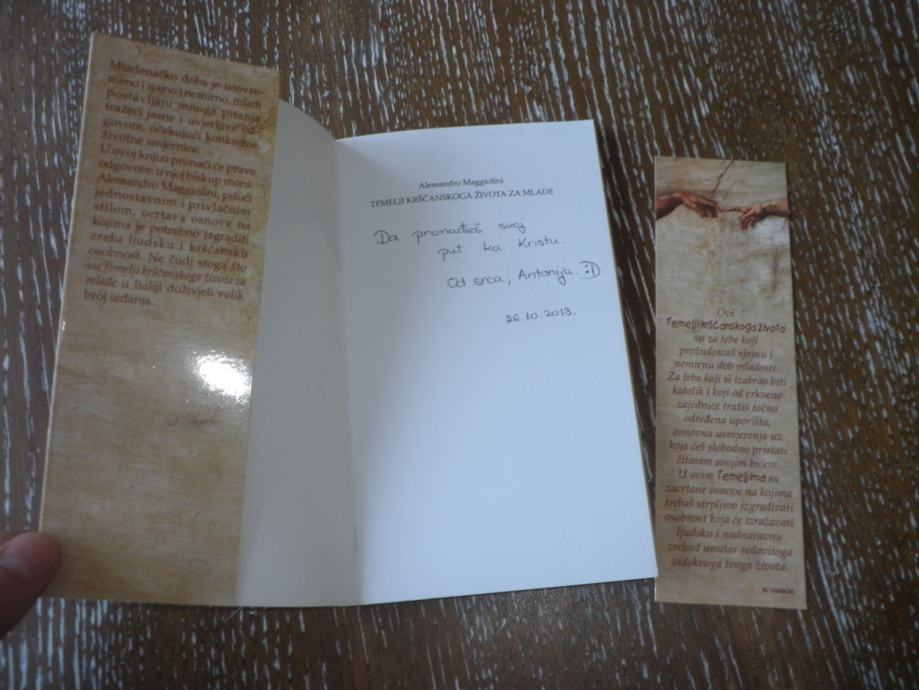 Mladenačko doba je istovre-
meno i sjajno i nemirno, mladi
postavljaju mnoga pitanja
tražeći jasne i uvjerljive od-
govore, očekujući konkretne
životne smjernice.
U ovoj knjizi pronaći će prave
odgovore: u njoj biskup mons.
Alessandro Maggiolini, pišući
jednostavnim i privlačnim
stilom, ocrtava osnove na
kojima je potrebno izgraditi
zrelu ljudsku i kršćansku
osobnost. Ne čudi stoga što
su Temelji kršćanskoga života za
mlade u Italiji doživjeli velik
broj izdanja.
Alessandro Maggiolini
TEMELJI KRŠĆANSKOGA ŽIVOTA ZA MLADE
Da pronađeš svoj
put ka Kristu.
Od srca, Antonija. :D
26.10.2013.
Ovi
Temelji kršćanskoga života
su za tebe koji
proživljavaš sjajnu i
nemirnu dob mladosti.
Za tebe koji si izabrao biti
katolik i koji od crkvene
zajednice tražiš točno
određena uporišta,
osnovna usmjerenja uz
koja ćeš slobodno pristati
čitavim svojim bićem.
U ovim Temeljima su
zacrtane osnove na kojima
trebaš strpljivo izgrađivati
osobnost koja će izražavati
ljudsku i nadnaravnu
zrelost unutar redovitoga
vidokruga tvoga života.